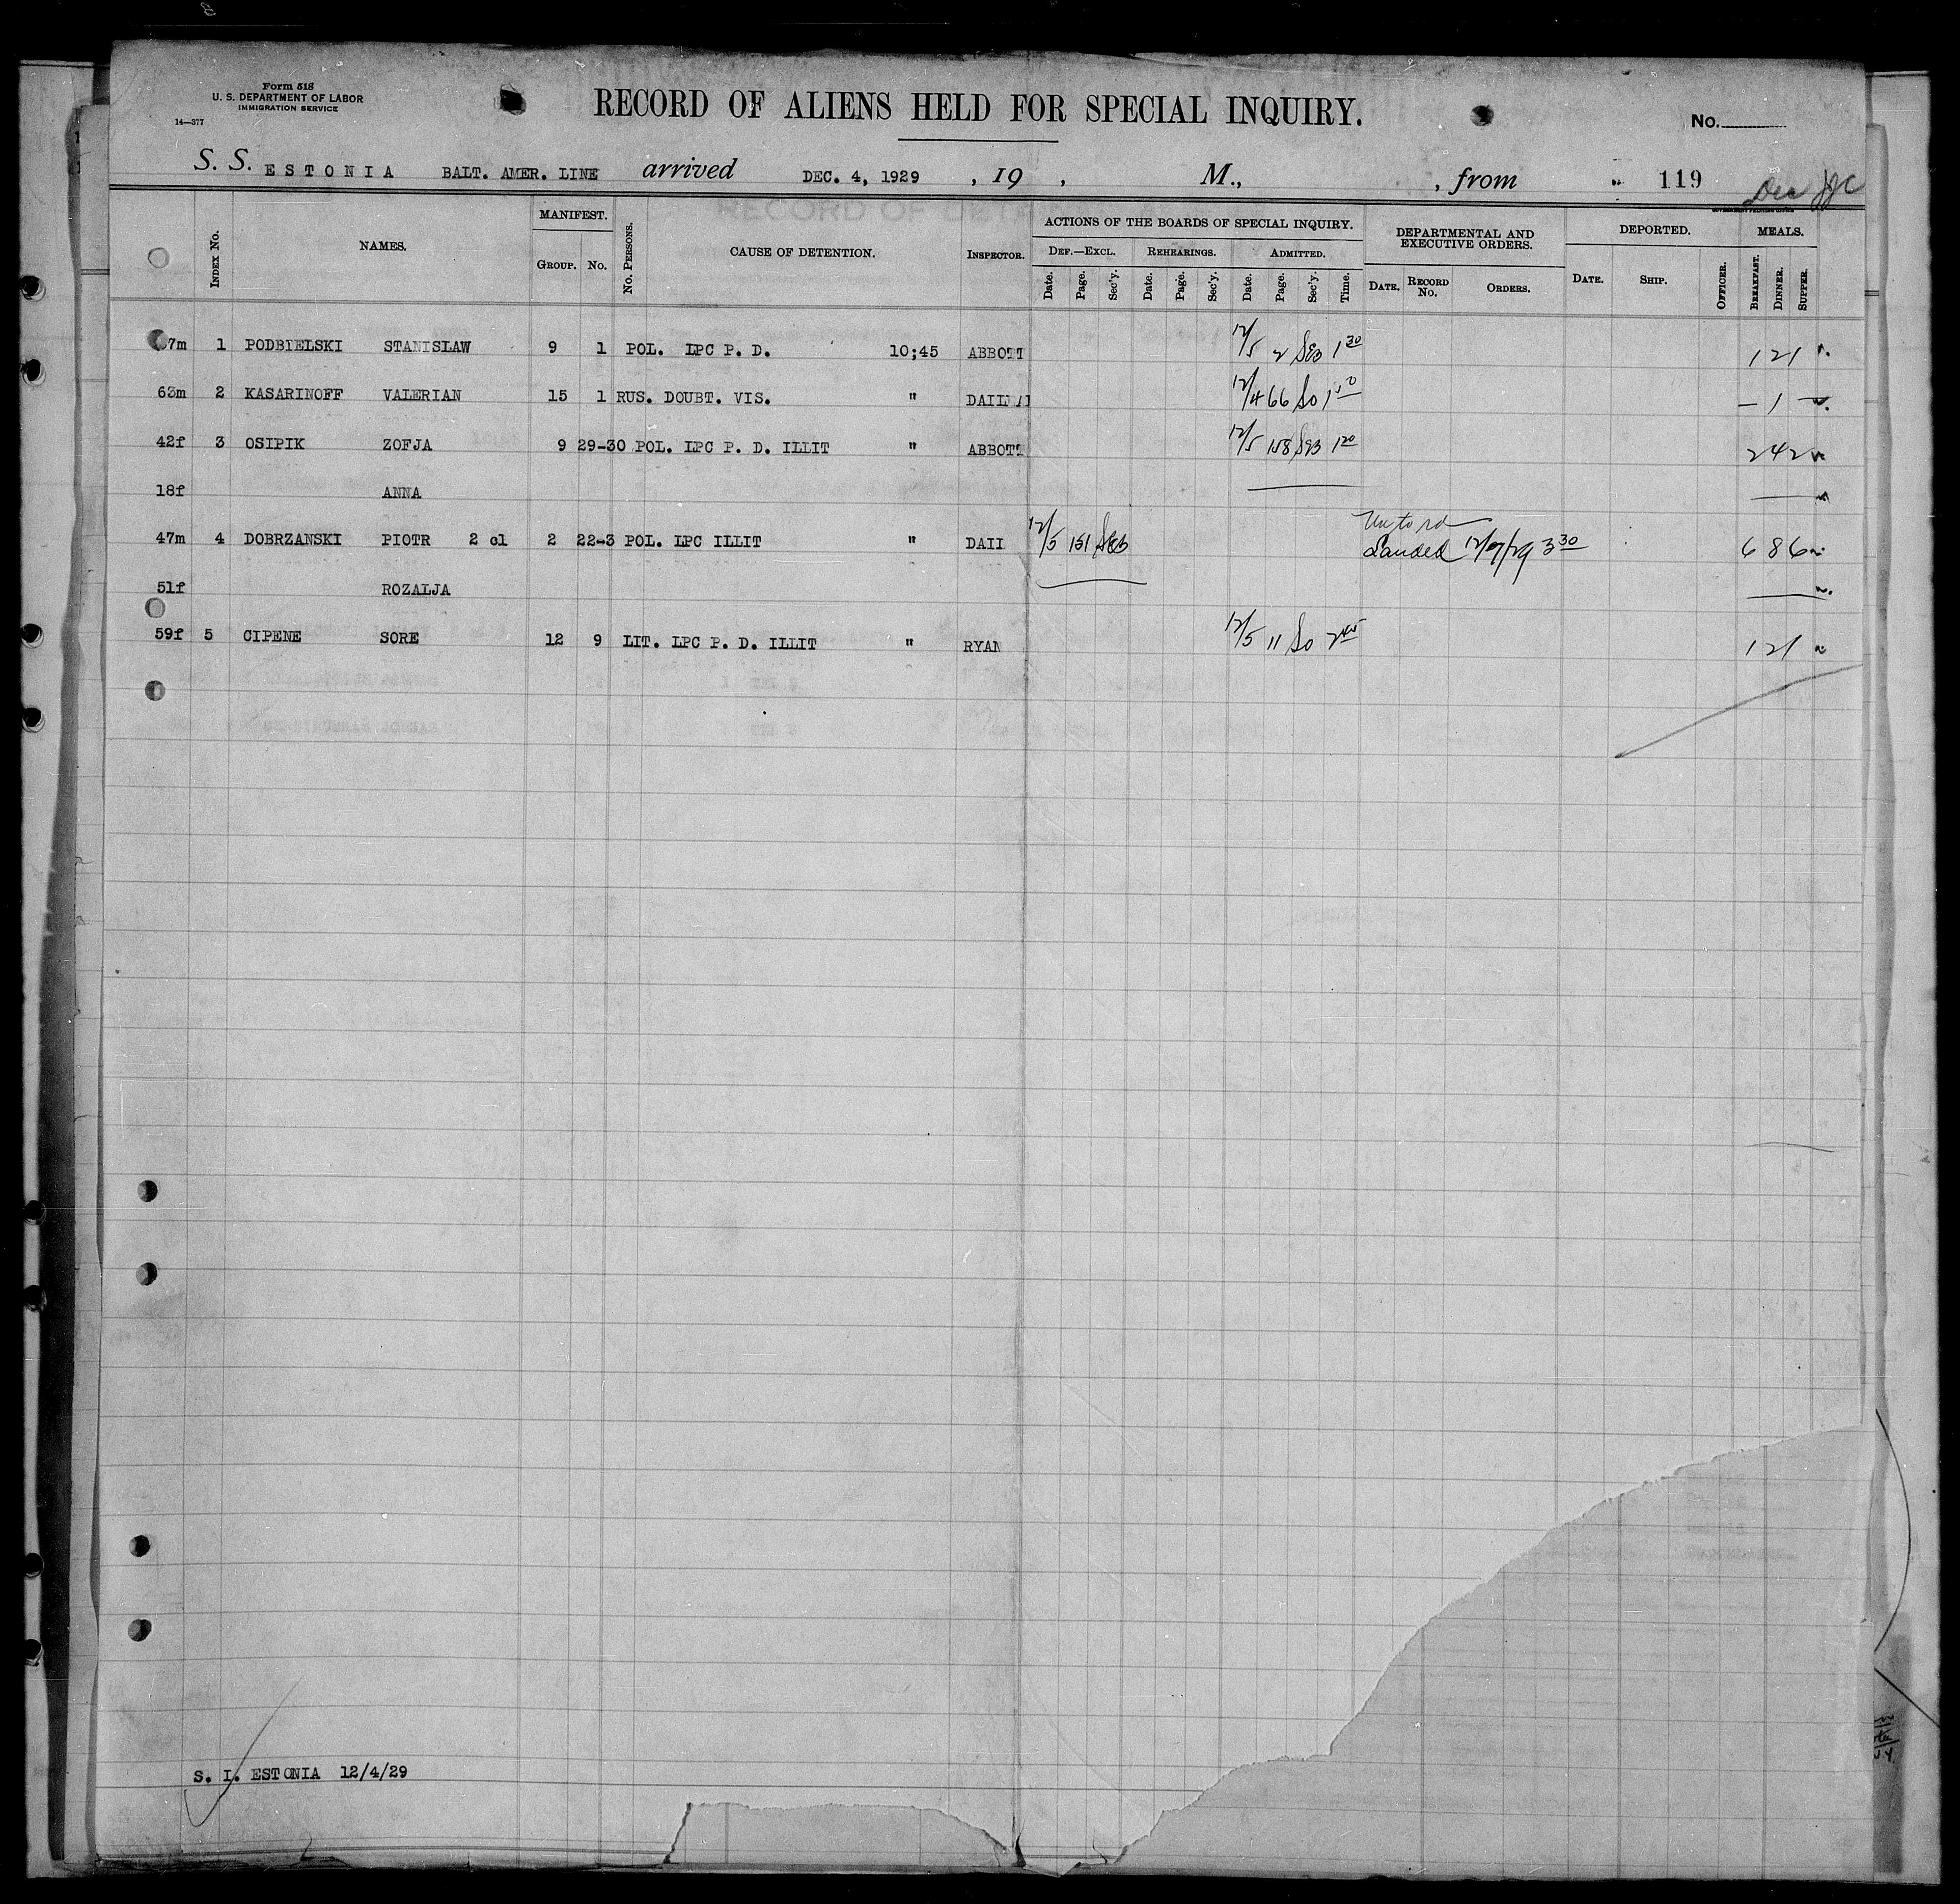 Form 518
U. S. DEPARTMENT OF LABOR
IMMIGRATION SERVICE
14—377
RECORD OF ALIENS HELD FOR SPECIAL INQUIRY.
No.
S. S. ESTONIA BALT. AMER. LINE arrived DEC. 4, 1929 , 19 , M., , from 119
GOVERNMENT PRINTING OFFICE
INDEX No. NAMES. MANIFEST. No. PERSONS. CAUSE OF DETENTION. INSPECTOR. ACTIONS OF THE BOARDS OF SPECIAL INQUIRY. DEPARTMENTAL AND EXECUTIVE ORDERS. DEPORTED. MEALS.
GROUP. No. DEF.—EXCL. REHEARINGS. ADMITTED.
Date. Page. Sec'y. Date. Page. Sec'y. Date. Page. Sec'y. Time. DATE. RECORD No. ORDERS. DATE. SHIP. OFFICER. BREAKFAST. DINNER. SUPPER.
7m 1 PODBIELSKI STANISLAW 9 1 POL. LPC P. D. 10;45 ABBOTT 12/5 2 SEB 1 30 1 2 1
63m 2 KASARINOFF VALERIAN 15 1 RUS. DOUBT. VIS. " 12/4 66 So — 1 —
42f 3 OSIPIK ZOFJA 9 29-30 POL. LPC P. D. ILLIT " ABBOTT 12/5 158 SEB 1 20 2 4 2
18f ANNA
47m 4 DOBRZANSKI PIOTR 2 cl 2 22-3 POL. LPC ILLIT " DAII 12/5 151 SEB Landed 12/7/29 3 30 6 8 6
51f ROZALJA
59f 5 CIPENE SORE 12 9 LIT. LPC P. D. ILLIT " RYAN 12/5 11 So 2 45 1 2 1
S. I. ESTONIA 12/4/29